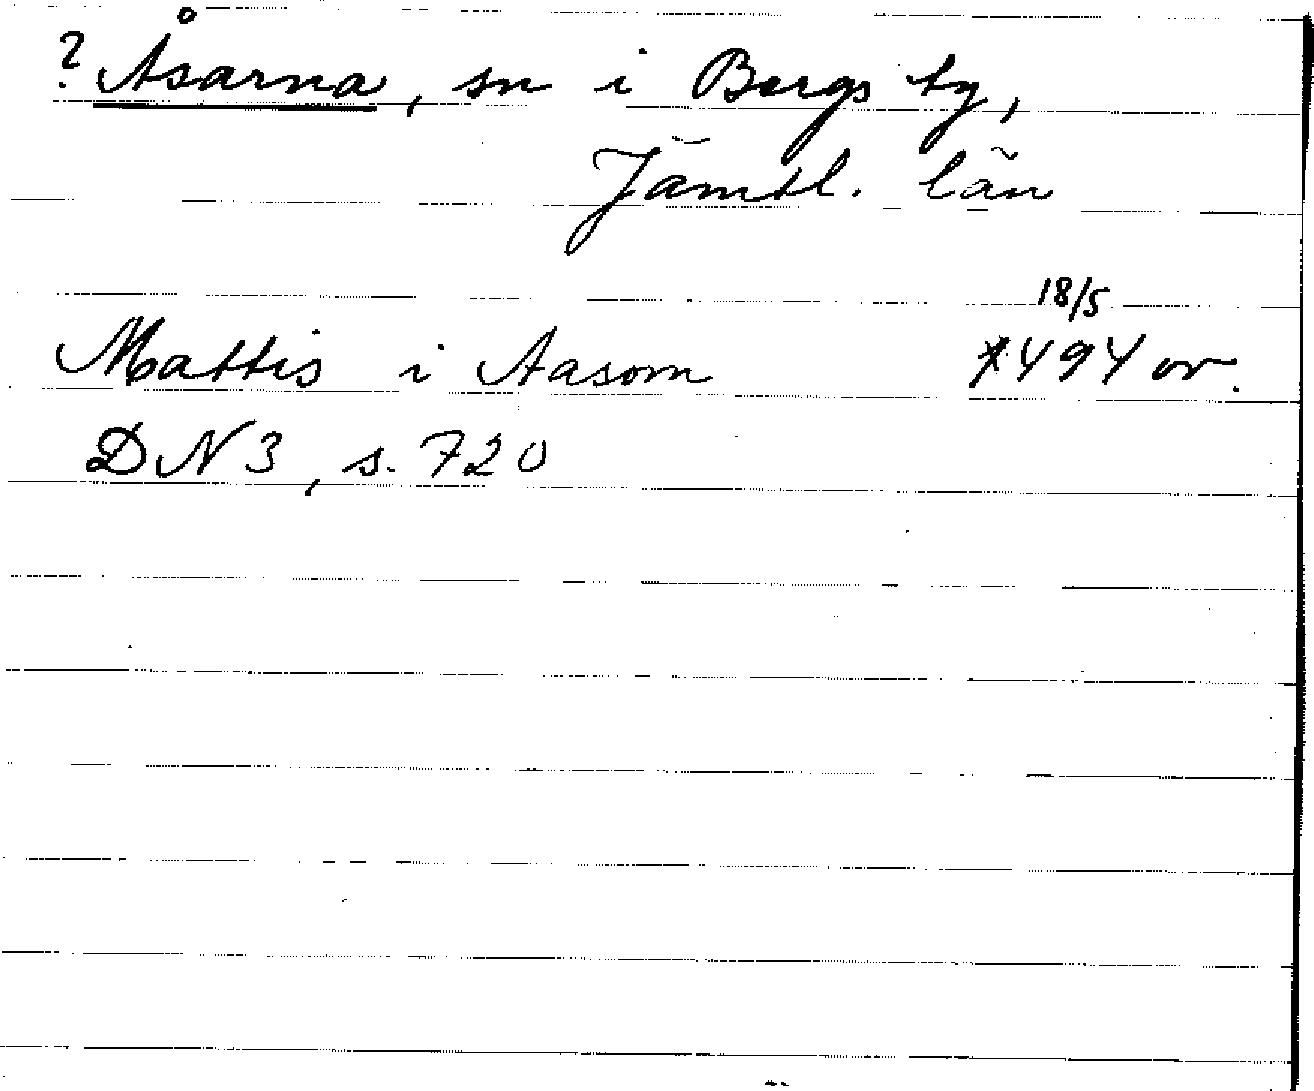 ? Åsarna, sn i Bergs tg,
Jämtl. län
18/5
Mattis i Aasom 1494 or.
DN 3, s. 720